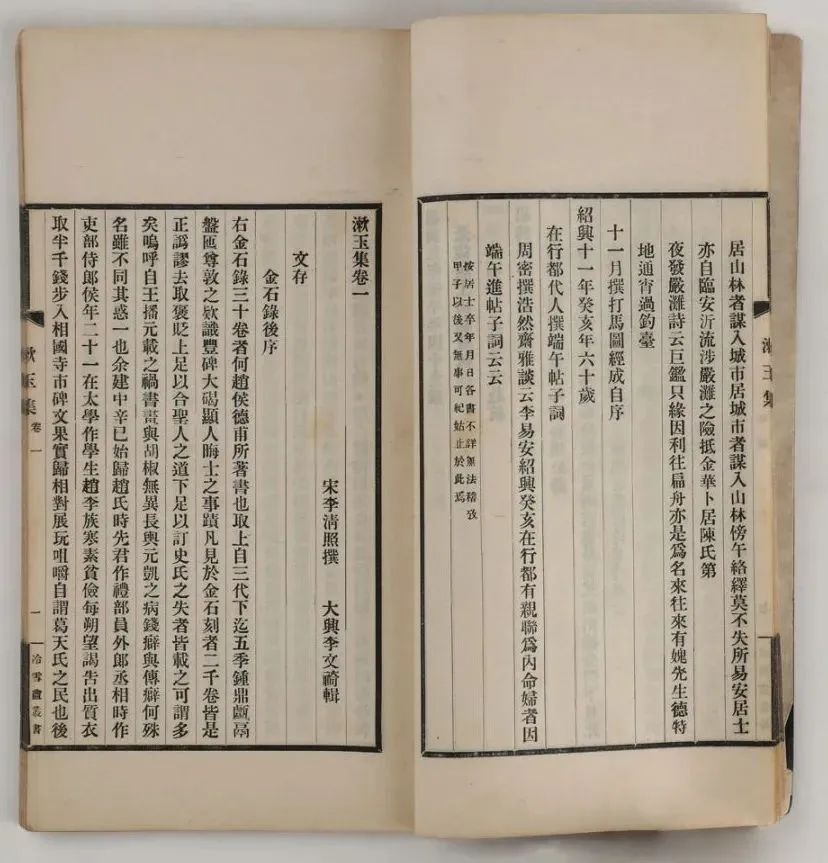 居山林者謀入城市居城市者謀入山林傍午絡繹莫不失所易安居士
亦自臨安泝流涉嚴灘之險抵金華卜居陳氏第
夜發嚴灘詩云巨鑑只緣因利往扁舟亦是爲名來往來有媿先生德特
地通宵過釣臺
十一月撰打馬圖經成自序
紹興十一年癸亥年六十歲
在行都代人撰端午帖子詞
周密撰浩然齋雅談云李易安紹興癸亥在行都有親聯爲內命婦者因
端午進帖子詞云云
按居士卒年月日各書不詳無法稽攷
甲子以後又無事可紀姑止於此焉
漱玉集
漱玉集卷一
宋李清照撰 大興李文䄎輯
文存
金石錄後序
右金石錄三十卷者何趙侯德甫所著書也取上自三代下迄五季鍾鼎甗鬲
盤匜尊敦之款識豐碑大碣顯人晦士之事蹟凡見於金石刻者二千卷皆是
正譌謬去取褒貶上足以合聖人之道下足以訂史氏之失者皆載之可謂多
矣嗚呼自王播元載之禍書畫與胡椒無異長輿元凱之病錢癖與傳癖何殊
名雖不同其惑一也余建中辛巳始歸趙氏時先君作禮部員外郎丞相時作
吏部侍郎侯年二十一在太學作學生趙李族寒素貧儉每朔望謁告出質衣
取半千錢步入相國寺市碑文果實歸相對展玩咀嚼自謂葛天氏之民也後
漱玉集 卷一
一
冷雪盦叢書